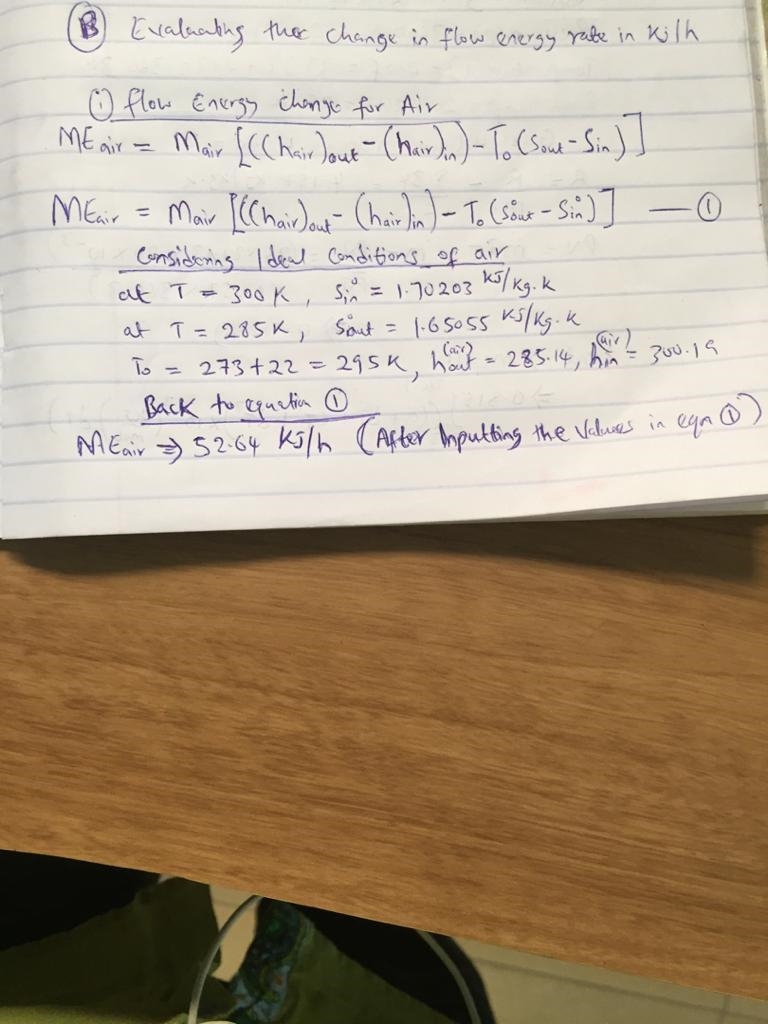 Ⓑ Evaluating thee change in flow energy rate in KJ/h
① flow Energy change for Air
MEair = Mair [((hair)out - (hair)in) - To (Sout - Sin)]
MEair = Mair [((hair)out - (hair)in) - To (S°out - S°in)] — ①
Considering Ideal conditions of air
at T = 300K, S°in = 1.70203 KJ/kg.k
at T = 285K, S°out = 1.65055 KJ/kg.k
To = 273+22 = 295K, hout(air) = 285.14, hin(air) = 300.19
Back to equation ①
MEair ⇒ 52.64 KJ/h (After Inputting the Values in eqn ①)